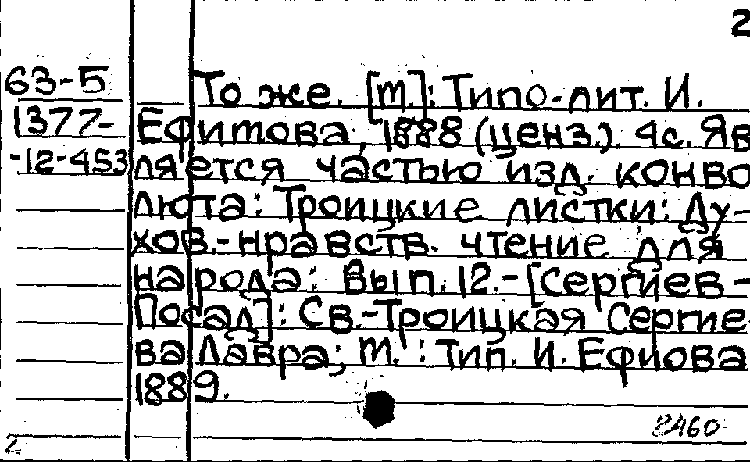 2
63-5 То же. [М.]: Типо-лит. И.
1377- Ефимова, 1888 (ценз.). 4с. Яв
-12-453 ляется частью изд. конво
люта: Троицкие листки: Ду-
хов.-нравств. чтение для
народа: Вып. 12.-[Сергиев-
Посад]: Св.-Троицкая Сергие
ва Лавра; М. : Тип. И. Ефиова
1889.
2460
2